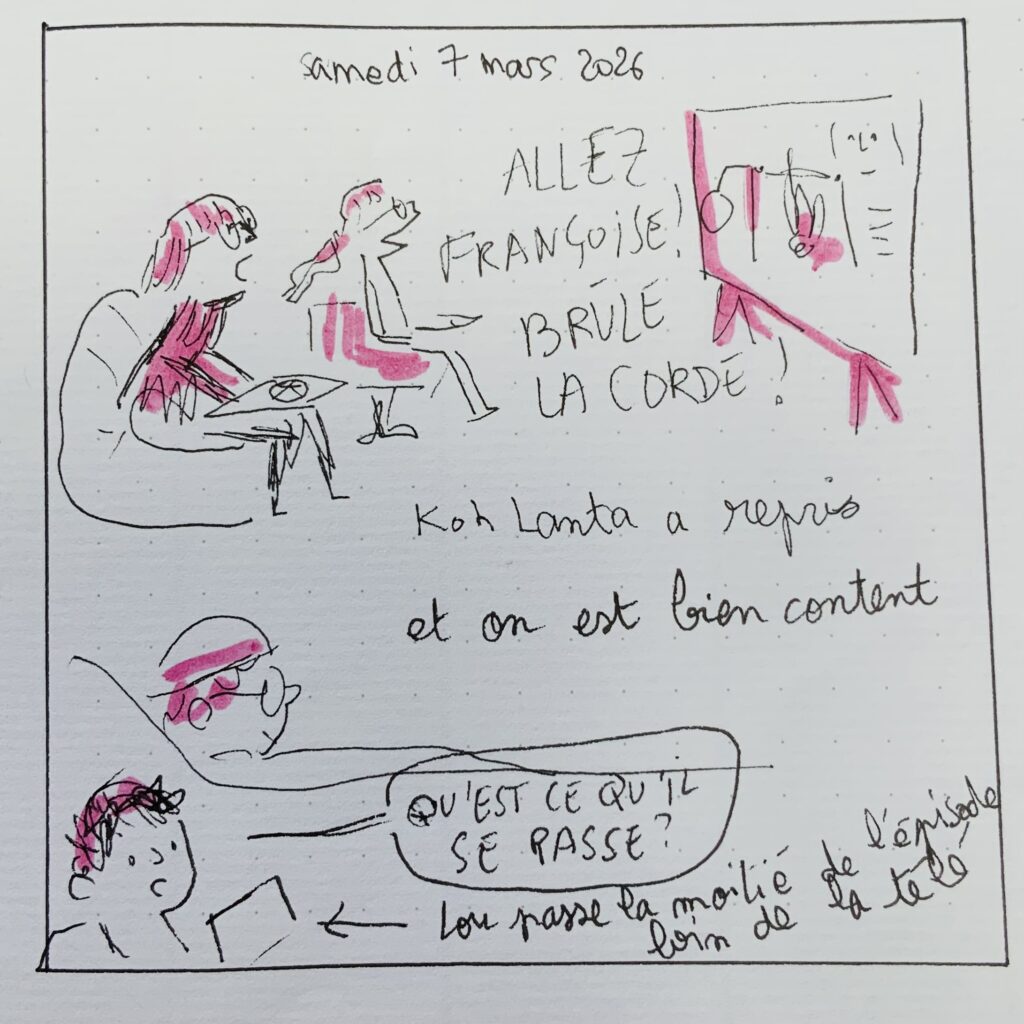 samedi 7 mars 2026
ALLEZ
FRANÇOISE!
BRÛLE
LA CORDE!
Koh Lanta a repris
et on est bien content
QU'EST CE QU'IL
SE PASSE?
Lou passe la moitié de l'épisode
loin de la télé